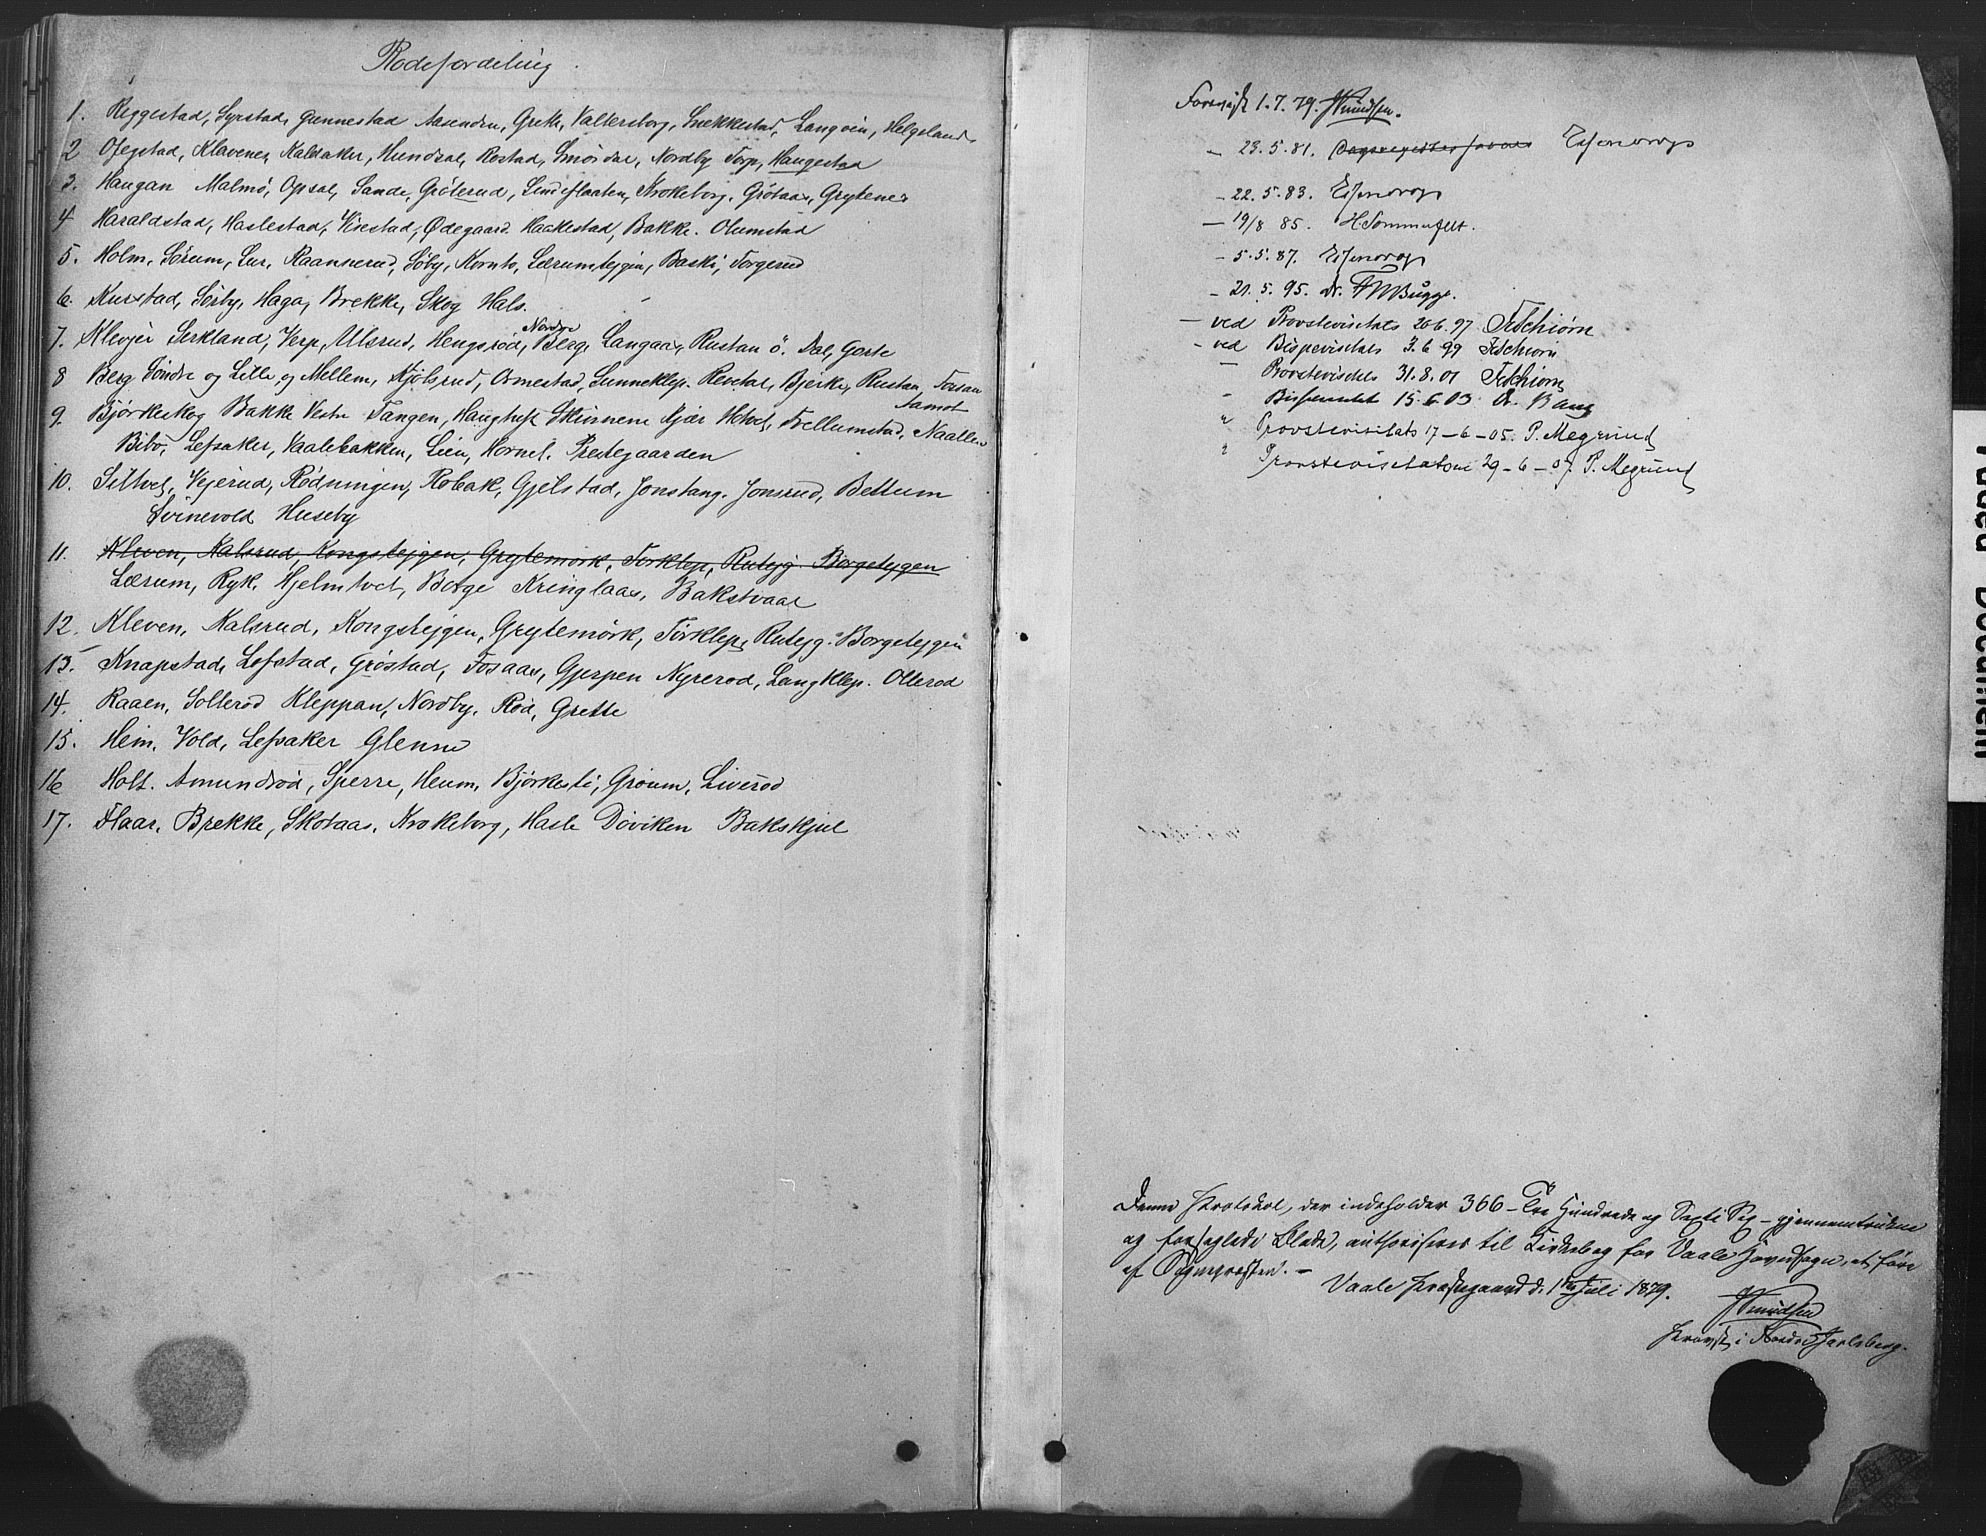 Rodefordeling.
1. Reggestad, Syrstad, Gunnestad Aasenden, Grette, Valtersborg, Snekkestad, Langvin, Helgeland
2 Ofegstad, Klavenes, Kaldaker, Hundsal, Rostad, Smördal, Nordby Torp, Haugestad
3. Haugan Malmö, Opsal, Sande, Gröterud, Lindeflaaten, Krokeborg, Grötaas, Grytenes
4 Haraldstad, Haslestad, Virestad, Ødegaard Haakestad, Bakke. Olumstad
5. Holm, Sörum, Sur, Raannerud, Söby, Kornto, Lærumtejgen, Baski, Torgerud
6. Kurstad, Sörby, Haga, Brekke, Skog Hals.
7. Klevjer Serkland, Verp, Ulsrud, Hengsröd, Nordre Berg, Langaas, Rustan ö. Dal, Gorte
8 Berg Söndre og Lille og Mellem, Kjölsrud, Ormestad, Sunneklep. Revetal, Bjerke, Rustan, Fossan
9. Bjørkeskog Bakke Vestre Tangen, Haugtuft Skinnene Kjær Hotvet, Trellumstad, Naallen Aamot
Bibo, Lefsaker, Vaalebakken, Lien, Hornet. Prestegaarden
10. Siltvet, Vejerud, Rödningen, Robak, Gjelstad, Jonstang. Jonsrud, Bettum
Svinevold Huseby
11. Kleven, Kalsrud, Kongstejgen, Grytemörk, Torklep, Rutejg. Borgetygen
Lærum, Ryk. Hjelmtvet, Borge Kringlaas, Bakstvaal
12. Kleven, Kalsrud, Kongstejgen, Grytemörk, Torklep, Rutejg. Borgetejgen
13. Knapstad, Lefstad, Gröstad, Fosaas, Gjerpen Nyrerod, Langklep. Ollerod
14. Raaen, Solleröd Kleppan, Nordby, Röd, Grette
15. Hem, Vold, Lefsaker Glenne
16 Holt. Amundröd, Sperre, Heum, Bjørkesti, Gröum, Liveröd
17. Flaar, Brekke, Skotaas, Krokeborg, Hasle Döviken Bakskjul
Forevist 1.7.79. JKnudsen.
– 23.5.81. Esmendrop
– 22.5.83. Esmendrop
– 19/8 85. H. Sommerfelt.
– 5.5.87. Esmendrop
– 21.5.95. Dr. FWBugge.
– ved Provstevisitats 20.6.97 FSchiörn
– ved Bispevisitats 3.6.99 FSchiörn
– Provstevisitats 31.8.01 FSchiörn
– Bispevisitat 15.6.03 Dr. Bang
" Provstevisitats 17–6–05. P. Megrund
" Provstevisitatsen 29–6–07 P. Megrund
Denne Protokol, der indeholder 366 – Tre Hundrede og Sexti Sex – gjennemtrukne
og forseglede Blade, authoriseres til Kirkebog for Vaale Hovedsogn, at føre
af Sognepræsten. –
Vaale Prestegaard d. 1ste Juli 1879.
JKnudsen
Provst i Nordre Jarlsberg.